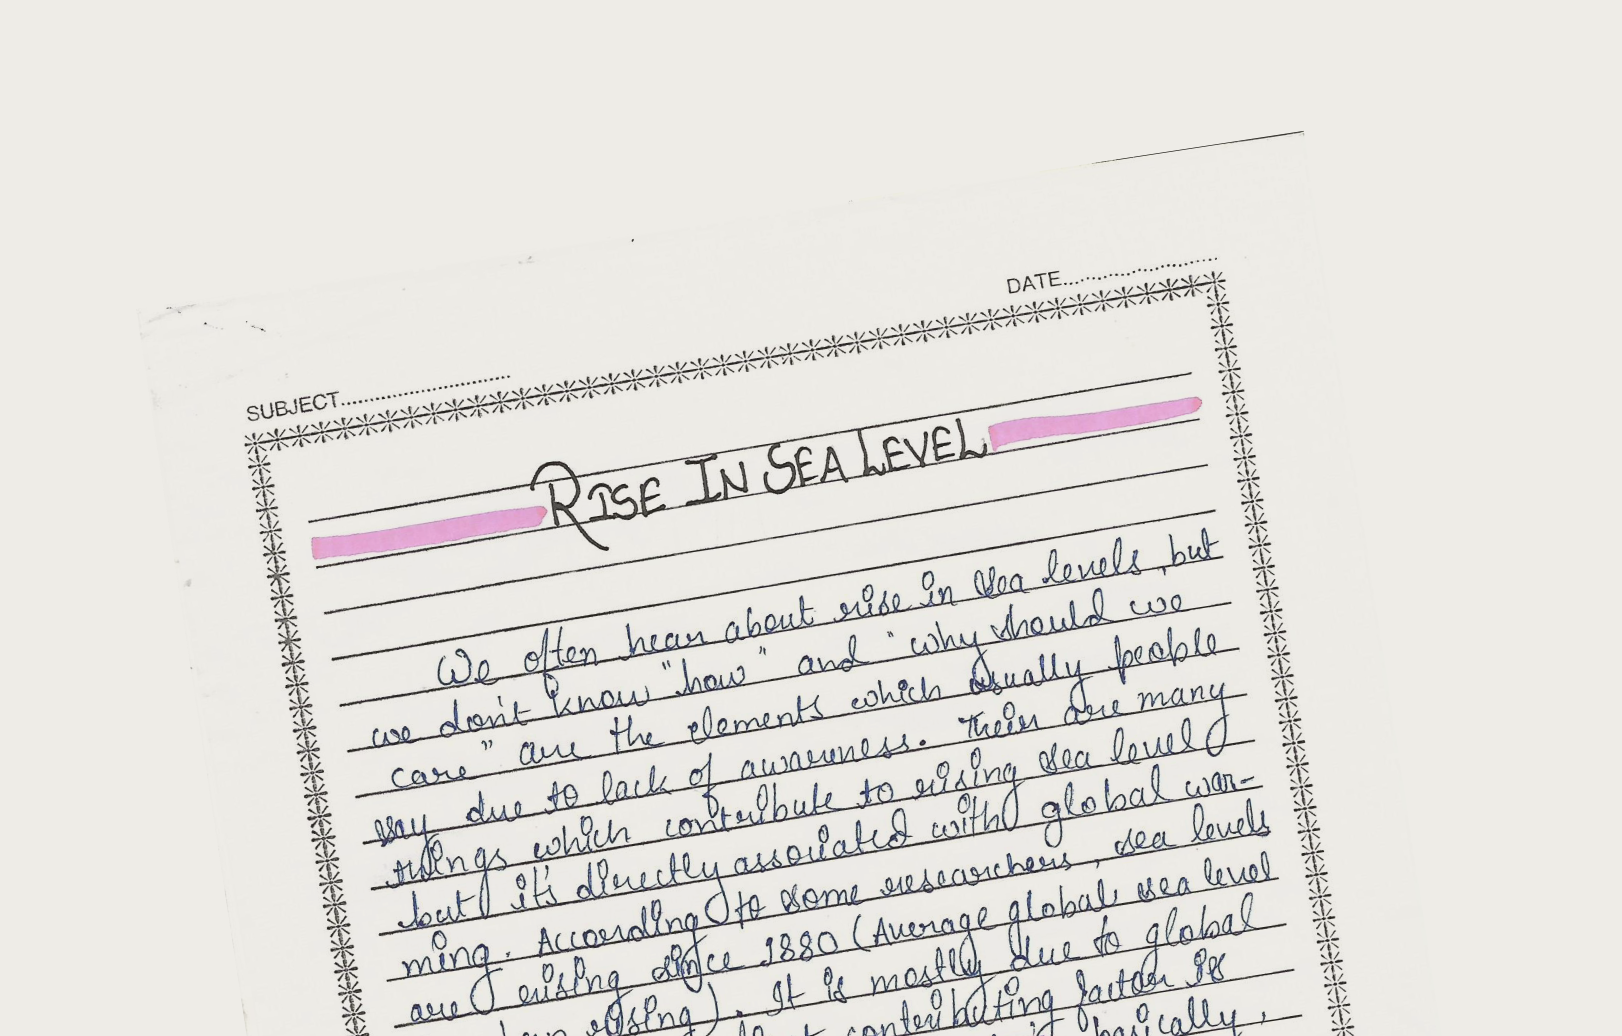 DATE........................
SUBJECT..............................
RISE IN SEA LEVEL
We often hear about rise in sea levels, but
we don't know "how" and "why should we
care" are the elements which usually people
say due to lack of awareness. Their are many
things which contribute to rising sea level
but it's directly associated with global war-
ming. According to some researchers, sea levels
are rising since 1880 (Average global sea level
rising). It is mostly due to global
contributing factor is
basically,